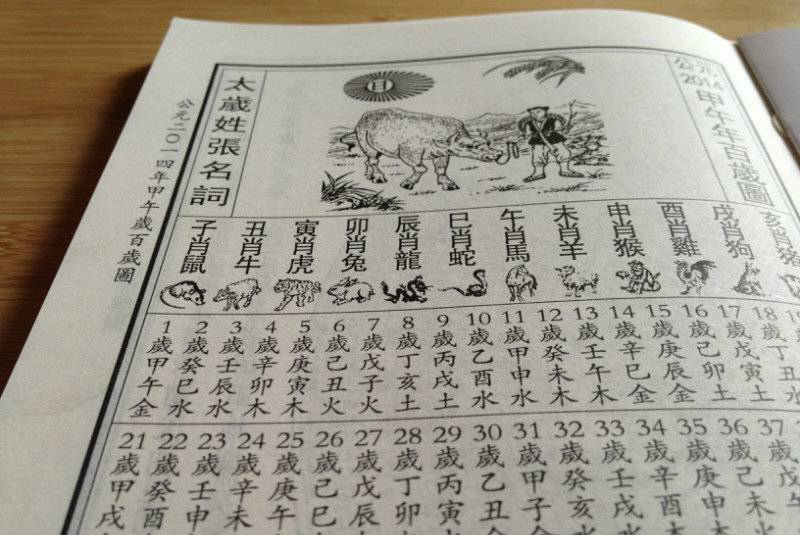 公元二〇一四年甲午歲百歲圖
太歲姓張名詞
日
公元2014甲午年百歲圖
子肖鼠
丑肖牛
寅肖虎
卯肖兔
辰肖龍
巳肖蛇
午肖馬
未肖羊
申肖猴
酉肖雞
戌肖狗
亥肖豬
1歲甲午金
2歲癸巳水
3歲壬辰水
4歲辛卯木
5歲庚寅木
6歲己丑火
7歲戊子火
8歲丁亥土
9歲丙戌土
10歲乙酉水
11歲甲申水
12歲癸未木
13歲壬午木
14歲辛巳金
15歲庚辰金
16歲己卯土
17歲戊寅土
18歲丁丑水
21歲甲戌
22歲癸酉
23歲壬申
24歲辛未
25歲庚午
26歲己巳
27歲戊辰
28歲丁卯
29歲丙寅
30歲乙丑
31歲甲子
32歲癸亥
33歲壬戌
34歲辛酉
35歲庚申
36歲己未
37歲戊午